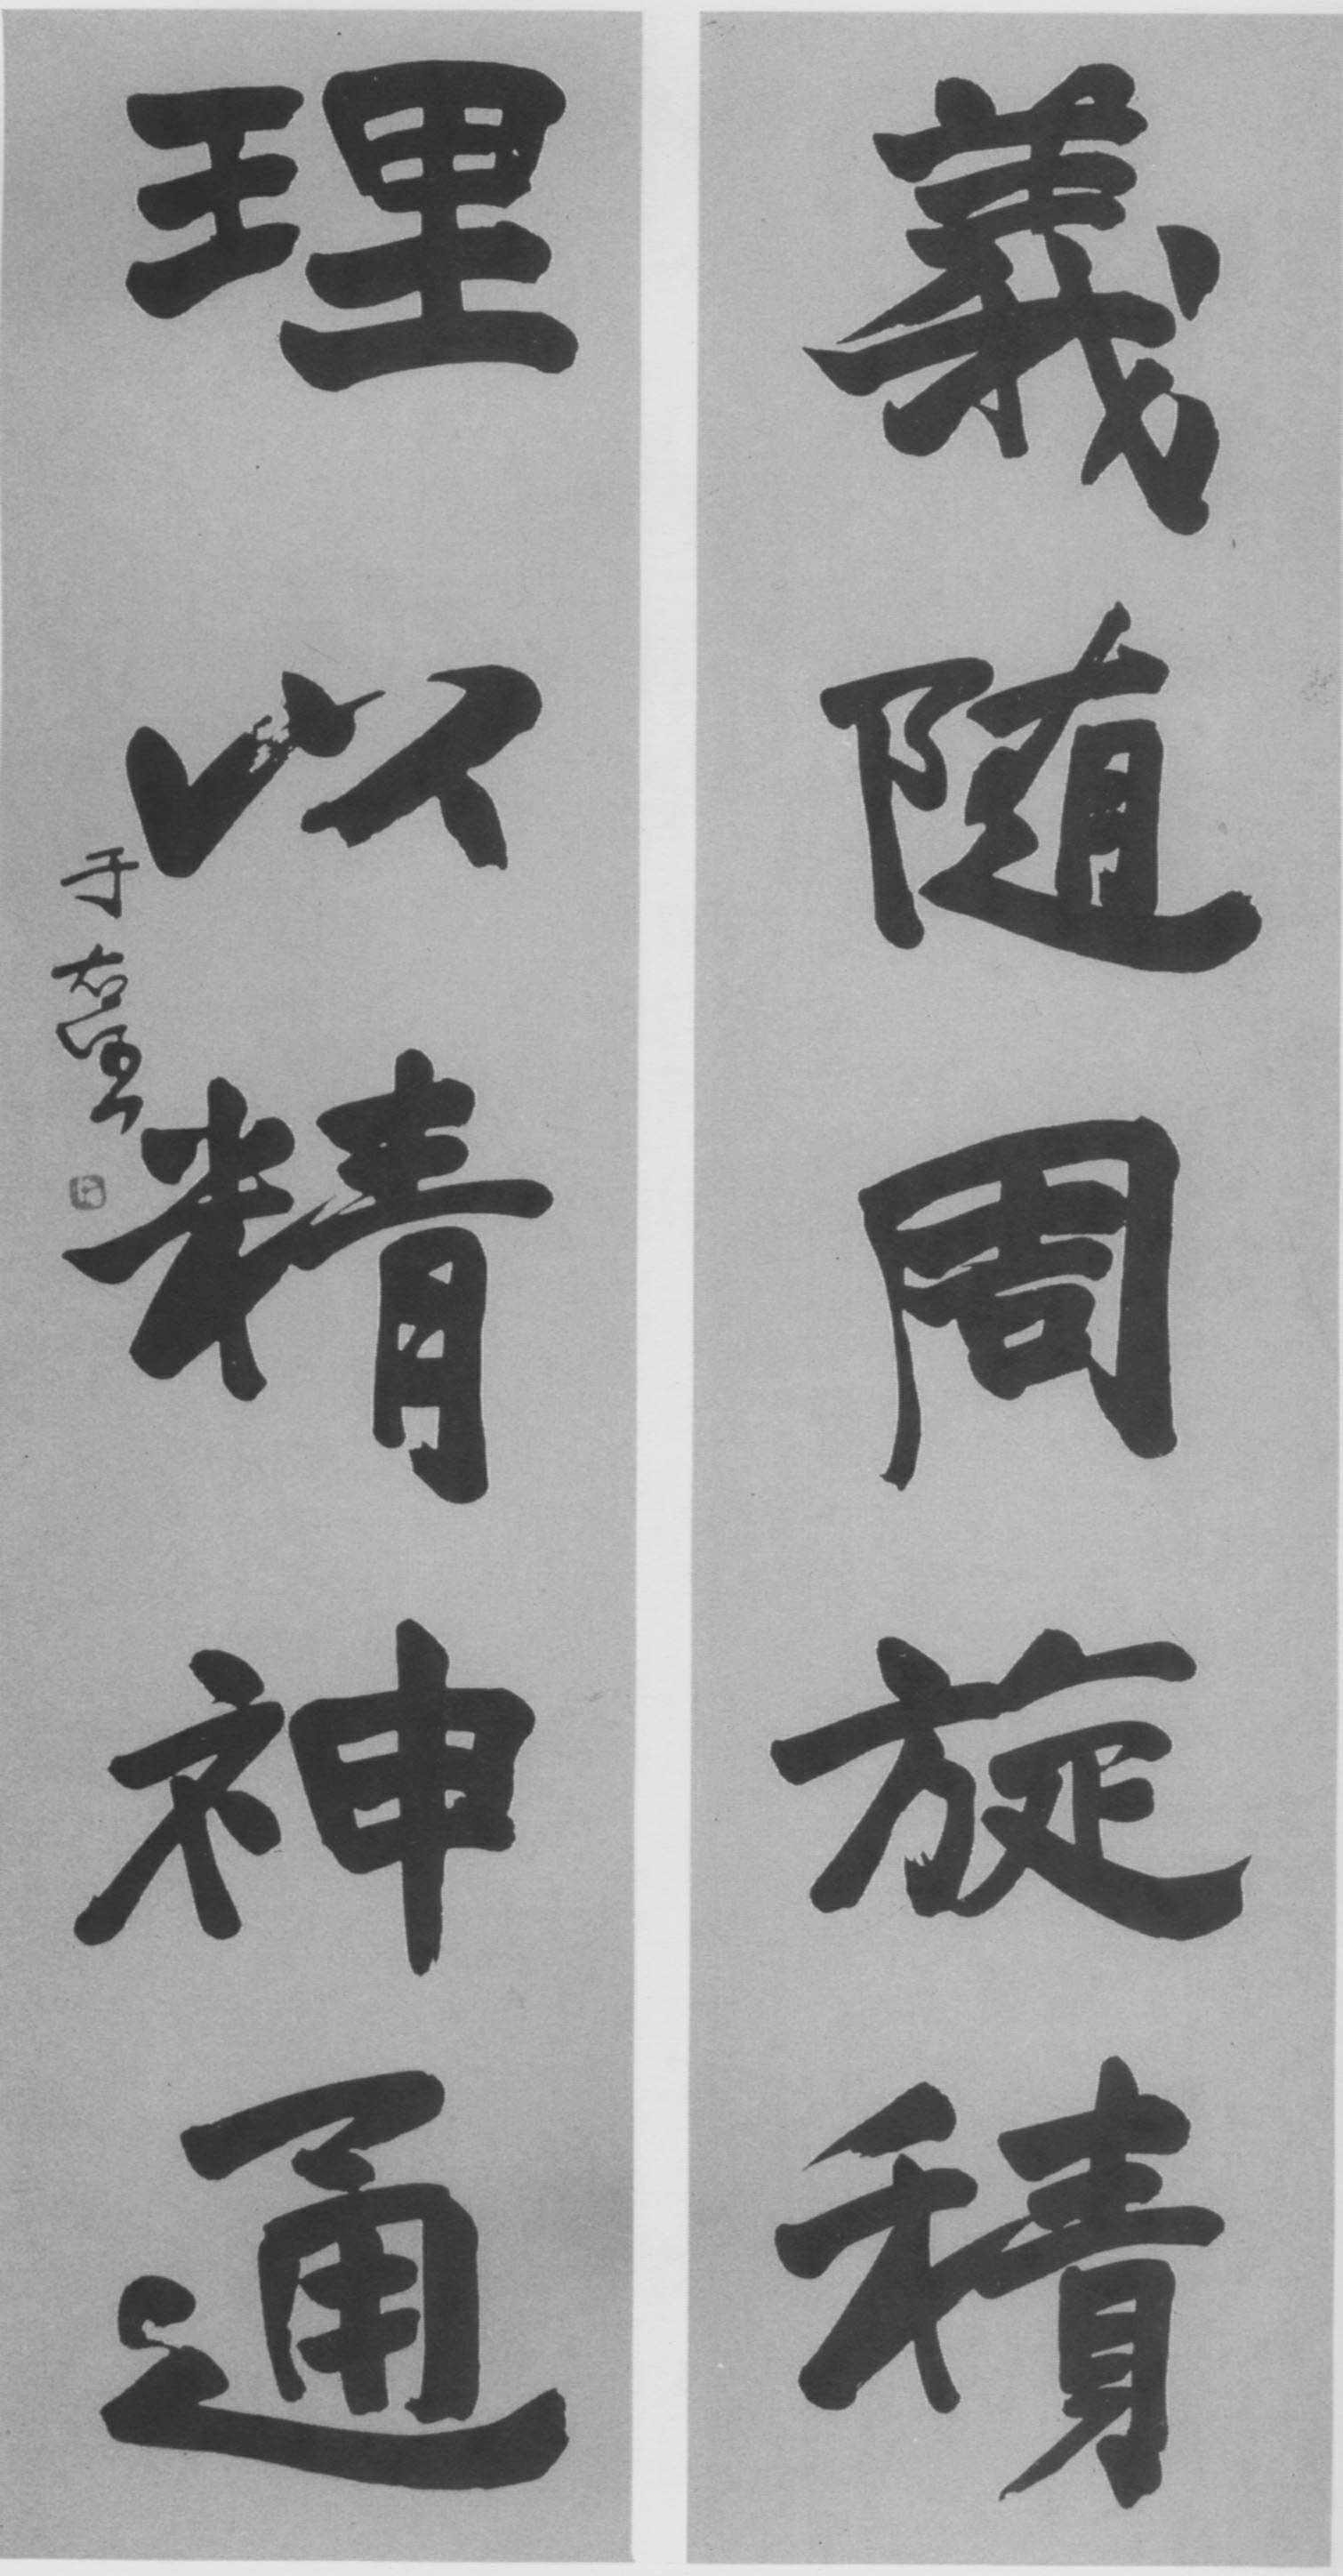 義随周旋積
理以精神通
于右任